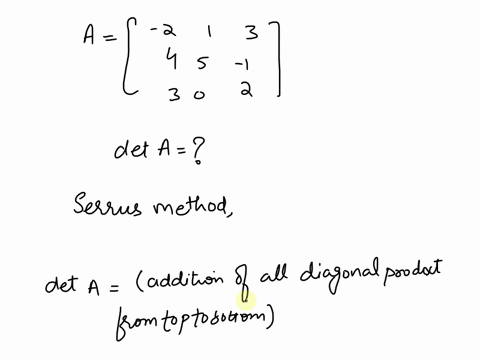 A = [ -2 1 3
4 5 -1
3 0 2 ]
det A = ?
Serrus method,
det A = (addition of all diagonal product
from top to bottom)